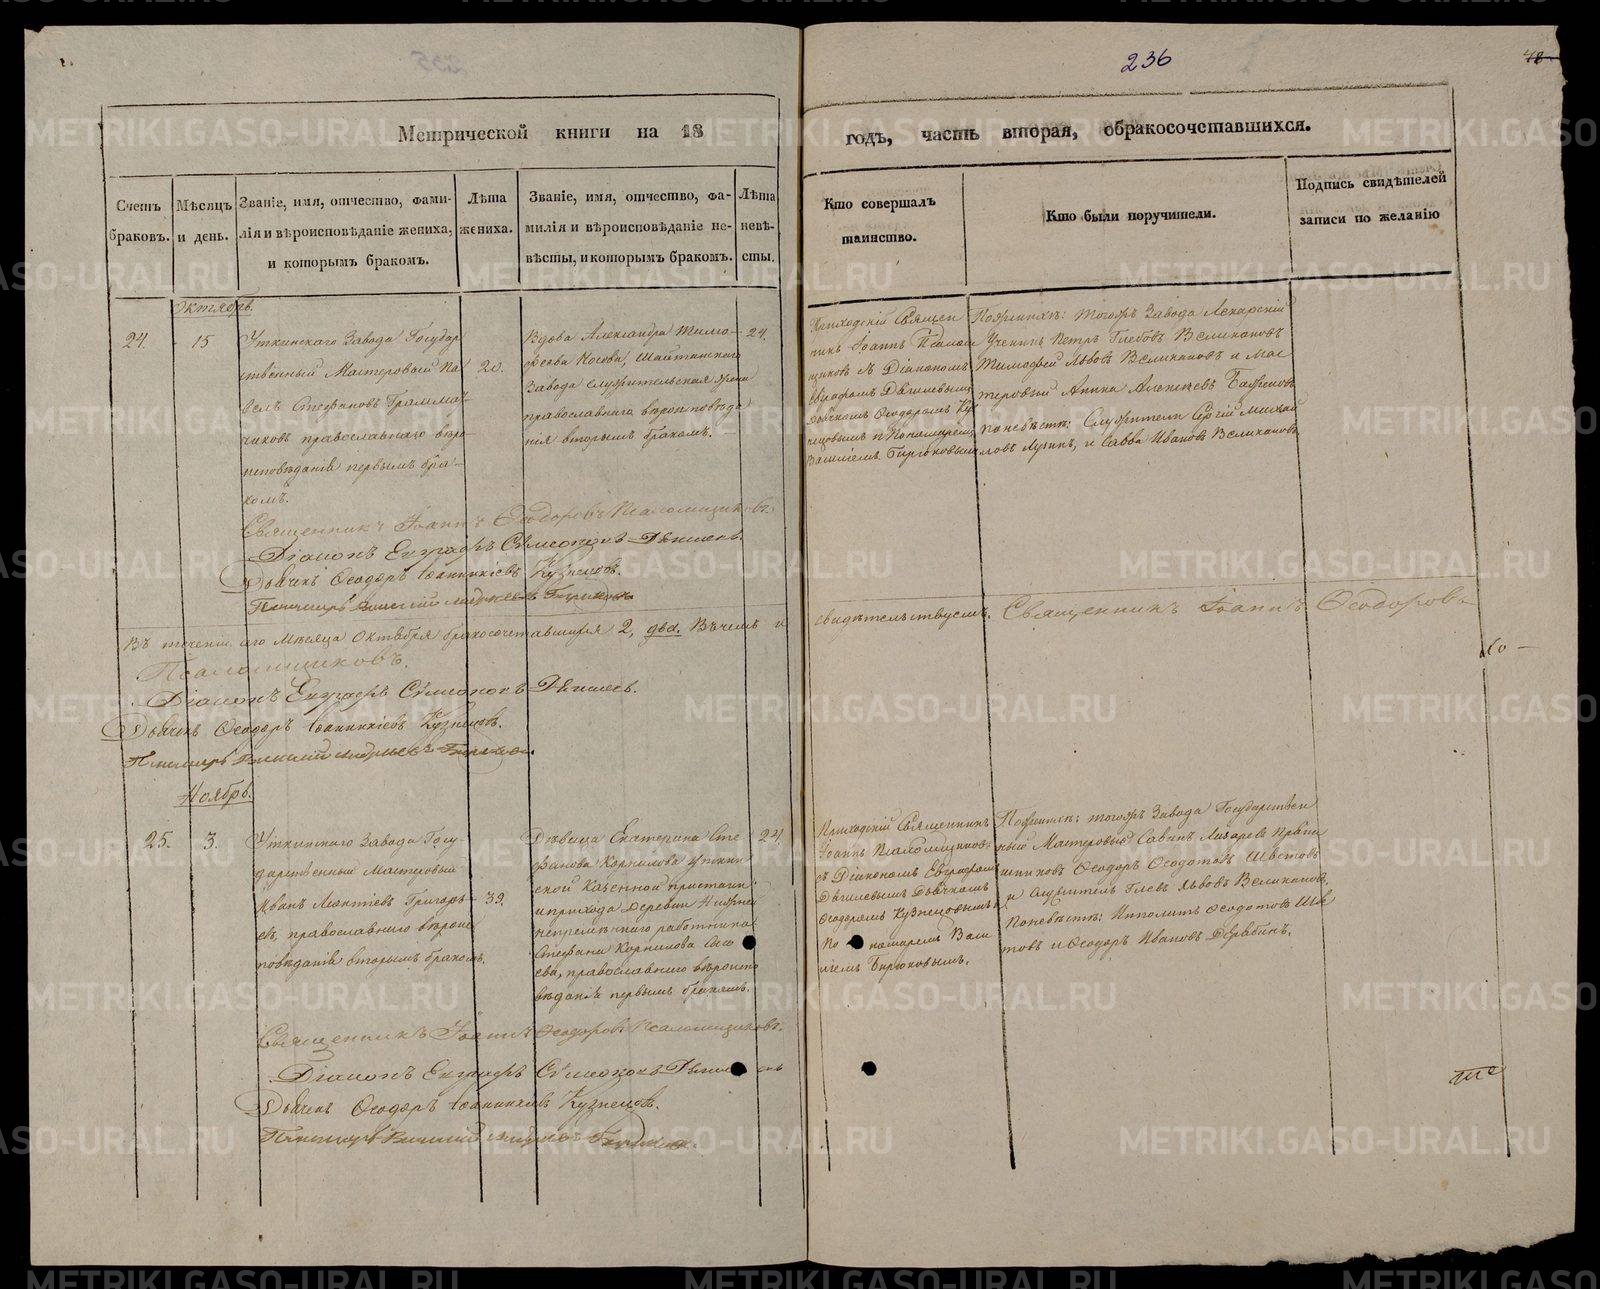 236
Метрической книги на 18
годъ, часть вторая, обракосочетавшихся.
Счетъ браковъ.
Мѣсяцъ и день.
Званіе, имя, отчество, фами-
лія и вѣроисповѣданіе жениха,
и которымъ бракомъ.
Лѣта
жениха.
Званіе, имя, отчество, фа-
милія и вѣроисповѣданіе не-
вѣсты, и которымъ бракомъ.
Лѣта
невѣ-
сты.
Кто совершалъ
таинство.
Кто были поручители.
Подпись свидѣтелей
записи по желанію
Октябрь.
24.
15
Уткинскаго Завода Государ
ственный Мастеровый Па
велъ Стефановъ Граммат
чиковъ православнаго вѣро-
исповѣданія первымъ бра-
комъ.
20.
Вдова Александра Тимо-
феева Носова, Шайтанскаго
Завода служительская жена
православнаго вѣроисповѣда
нія вторымъ бракомъ.
24.
Приходскій Священ
никъ Іоаннъ Псалом
щиковъ съ Діакономъ
Евграфомъ Дягилевымъ
Дьячкомъ Ѳеодоромъ Куз
нецовымъ и Пономаремъ
Василіемъ Бирюковымъ
Пожениху: тогожъ Завода Лекарскій
Ученикъ Петръ Глебовъ Великановъ
Тимофей Львовъ Великановъ и Мас
теровый Аника Алексѣевъ
поневѣсте: Служители Сергій Михай
ловъ и Савва Ивановъ Великановъ
Священникъ Іоаннъ Ѳеодоровъ Псаломщиковъ.
Діаконъ Евграфъ Сѵмеоновъ Дягилевъ.
Дьячекъ Ѳеодоръ Іоанникіевъ Кузнецовъ.
Пономарь Василій Андреевъ Бирюковъ
Въ теченіи сего Мѣсяца Октября бракосочетавшихся 2, два. Въ чемъ и
свидѣтельствуемъ. Священникъ Іоаннъ Ѳеодоровъ
Псаломщиковъ.
Діаконъ Евграфъ Сѵмеоновъ Дягилевъ.
Дьячекъ Ѳеодоръ Іоанникіевъ Кузнецовъ.
Пономарь Василій Андреевъ Бирюковъ.
Ноябрь.
25.
3.
Уткинскаго Завода Госу-
дарственный Мастеровый
Иванъ Леонтіевъ Григорь-
евъ, православнаго вѣроис
повѣданія вторымъ бракомъ.
39.
Дѣвица Екатерина Сте
фанова Корнилова Уткин
ской Казенной пристани
и прихода Деревни
непремѣннаго работника
Стефана Корнилова
ева, православнаго вѣроиспо
вѣданія первымъ бракомъ.
24.
Приходскій Священникъ
Іоаннъ Псаломщиковъ
съ Діакономъ Евграфомъ
Дягилевымъ Дьячкомъ
Ѳеодоромъ Кузнецовымъ и
Пономаремъ Васи
ліемъ Бирюковымъ.
Пожениху: тогожъ Завода Государствен
ный Мастеровый Савинъ Лазаревъ
Ѳеодоръ Ѳеодотовъ Швецовъ
и служитель Глебъ Львовъ Великановъ.
Поневѣсте: Ипполитъ Ѳеодотовъ Шве
цовъ и Ѳеодоръ Ивановъ Дерябинъ.
Священникъ Іоаннъ Ѳеодоровъ Псаломщиковъ.
Діаконъ Евграфъ Сѵмеоновъ Дягилевъ
Дьячекъ Ѳеодоръ Іоанникіевъ Кузнецовъ.
Пономарь Василій Андреевъ Бирюковъ.
METRIKI.GASO-URAL.RU